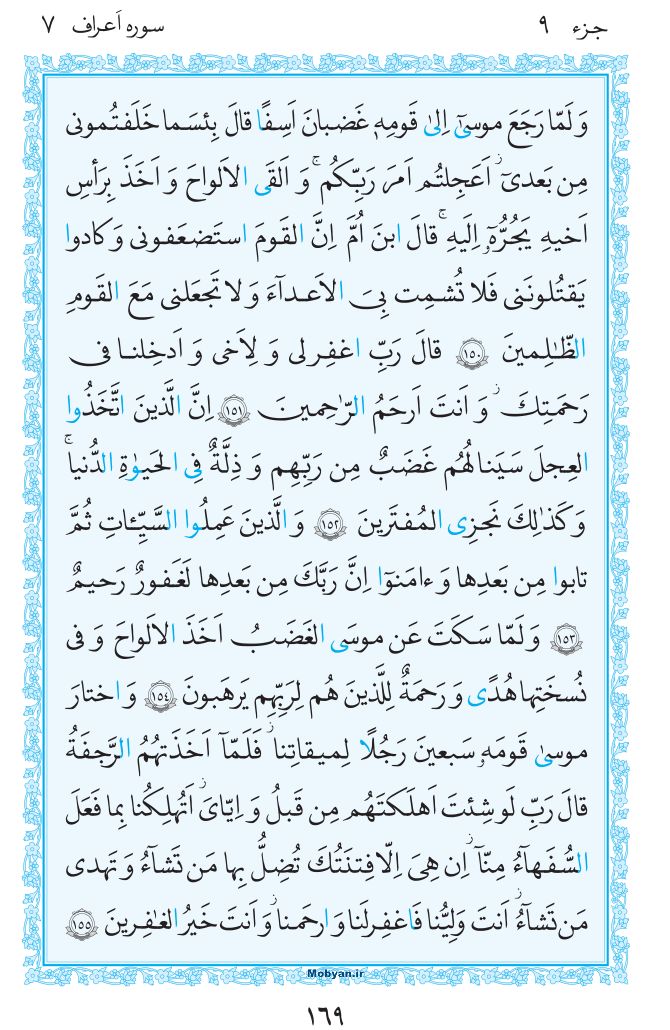 جزء ٩ سوره اَعراف ٧
وَ لَمّا رَجَعَ موسىٰٓ اِلىٰ قَومِهٖ غَضبانَ اَسِفًا قالَ بِئسَما خَلَفتُمونى
مِن بَعدىٓ ۖ اَعَجِلتُم اَمرَ رَبِّكُم ۖ وَ اَلقَى الاَلواحَ وَ اَخَذَ بِرَأسِ
اَخيهِ يَجُرُّهٗٓ اِلَيهِ ۚ قالَ ابنَ اُمَّ اِنَّ القَومَ استَضعَفونى وَ كادوا
يَقتُلونَنى فَلا تُشمِت بِىَ الاَعدآءَ وَ لا تَجعَلنى مَعَ القَومِ
الظّٰلِمينَ ١٥٠ قالَ رَبِّ اغفِرلى وَ لِاَخى وَ اَدخِلنا فى
رَحمَتِكَ ۖ وَ اَنتَ اَرحَمُ الرّٰحِمينَ ١٥١ اِنَّ الَّذينَ اتَّخَذُوا
العِجلَ سَيَنالُهُم غَضَبٌ مِن رَبِّهِم وَ ذِلَّةٌ فِى الحَيوٰةِ الدُّنيا ۚ
وَ كَذٰلِكَ نَجزِى المُفتَرينَ ١٥٢ وَ الَّذينَ عَمِلُوا السَّيِّـٔاتِ ثُمَّ
تابوا مِن بَعدِها وَ ءامَنوٓا اِنَّ رَبَّكَ مِن بَعدِها لَغَفورٌ رَحيمٌ
١٥٣ وَ لَمّا سَكَتَ عَن موسَى الغَضَبُ اَخَذَ الاَلواحَ وَ فى
نُسخَتِها هُدًى وَ رَحمَةٌ لِلَّذينَ هُم لِرَبِّهِم يَرهَبونَ ١٥٤ وَ اختارَ
موسىٰ قَومَهٗ سَبعينَ رَجُلًا لِميقاتِنا ۖ فَلَمّآ اَخَذَتهُمُ الرَّجفَةُ
قالَ رَبِّ لَو شِئتَ اَهلَكتَهُم مِن قَبلُ وَ اِيّاىَ ۖ اَتُهلِكُنا بِما فَعَلَ
السُّفَهآءُ مِنّآ ۖ اِن هِىَ اِلّا فِتنَتُكَ تُضِلُّ بِها مَن تَشآءُ وَ تَهدى
مَن تَشآءُ ۖ اَنتَ وَلِيُّنا فَاغفِرلَنا وَ ارحَمنا ۖ وَ اَنتَ خَيرُ الغٰفِرينَ ١٥٥
Mobyan.ir
١٦٩